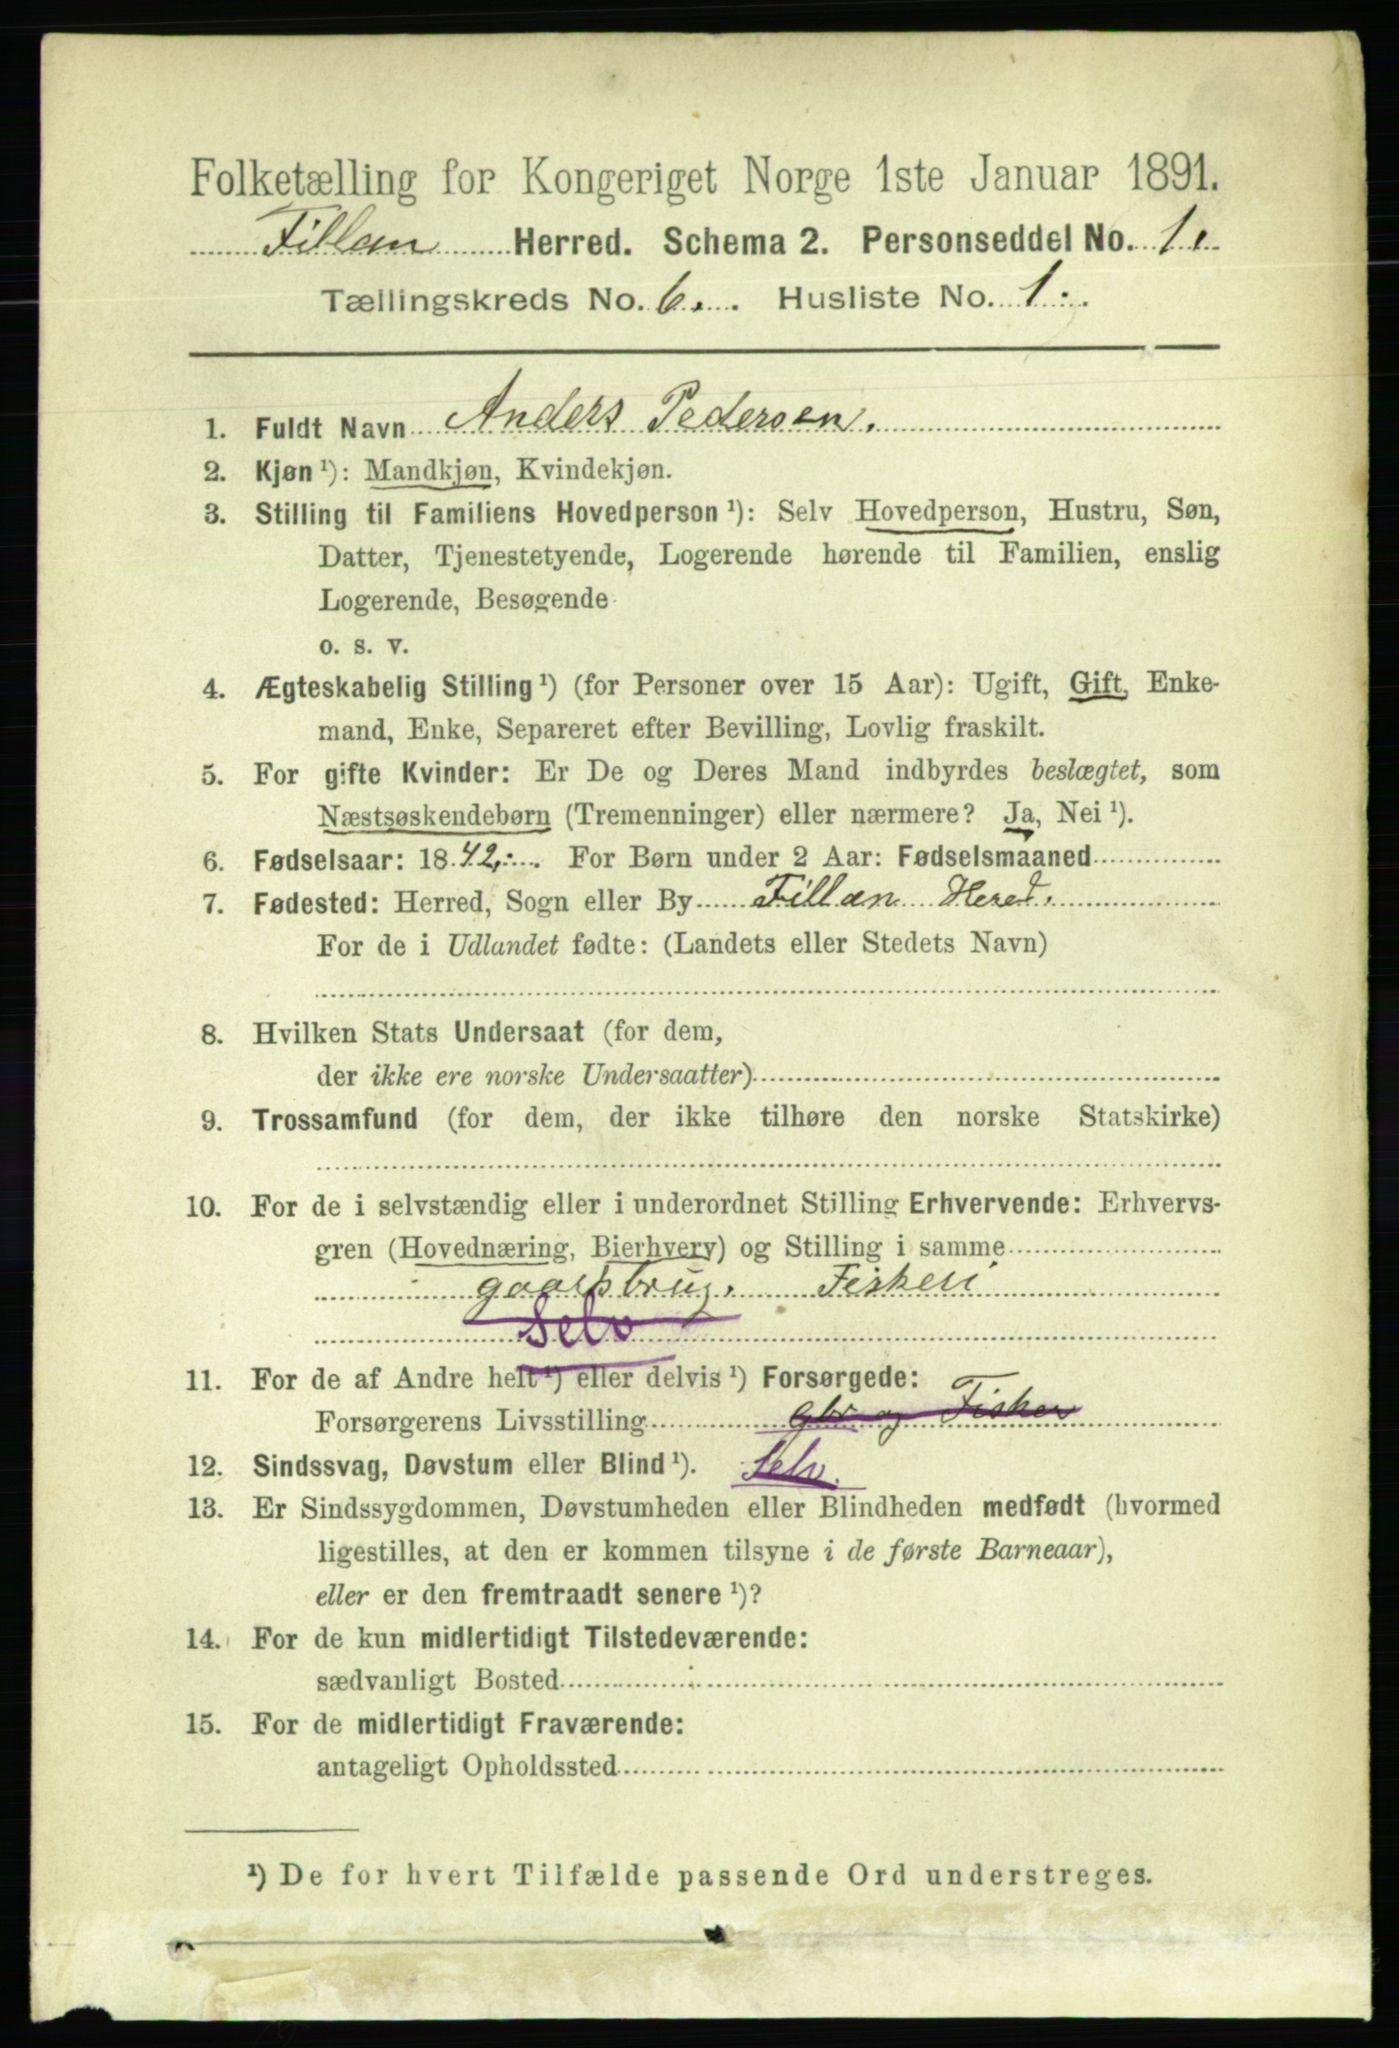 Folketælling for Kongeriget Norge 1ste Januar 1891.
Fillan Herred. Schema 2. Personseddel No. 1.
Tællingskreds No. 6. Husliste No. 1.
1. Fuldt Navn Anders Pedersen.
2. Kjøn ¹): Mandkjøn, Kvindekjøn.
3. Stilling til Familiens Hovedperson ¹): Selv Hovedperson, Hustru, Søn,
Datter, Tjenestetyende, Logerende hørende til Familien, enslig
Logerende, Besøgende
o. s. v.
4. Ægteskabelig Stilling ¹) (for Personer over 15 Aar): Ugift, Gift, Enke-
mand, Enke, Separeret efter Bevilling, Lovlig fraskilt.
5. For gifte Kvinder: Er De og Deres Mand indbyrdes beslægtet, som
Næstsøskendebørn (Tremenninger) eller nærmere? Ja, Nei ¹).
6. Fødselsaar: 1842. For Børn under 2 Aar: Fødselsmaaned
7. Fødested: Herred, Sogn eller By Fillan Hered.
For de i Udlandet fødte: (Landets eller Stedets Navn)
8. Hvilken Stats Undersaat (for dem,
der ikke ere norske Undersaatter)
9. Trossamfund (for dem, der ikke tilhøre den norske Statskirke)
10. For de i selvstændig eller i underordnet Stilling Erhvervende: Erhvervs-
gren (Hovednæring, Bierhverv) og Stilling i samme
gaardsbrug. Fiskeri
Selv
11. For de af Andre helt ¹) eller delvis ¹) Forsørgede:
Forsørgerens Livsstilling Gbr og Fisker
12. Sindssvag, Døvstum eller Blind ¹). Selv.
13. Er Sindssygdommen, Døvstumheden eller Blindheden medfødt (hvormed
ligestilles, at den er kommen tilsyne i de første Barneaar),
eller er den fremtraadt senere ¹)?
14. For de kun midlertidigt Tilstedeværende:
sædvanligt Bosted
15. For de midlertidigt Fraværende:
antageligt Opholdssted
¹) De for hvert Tilfælde passende Ord understreges.